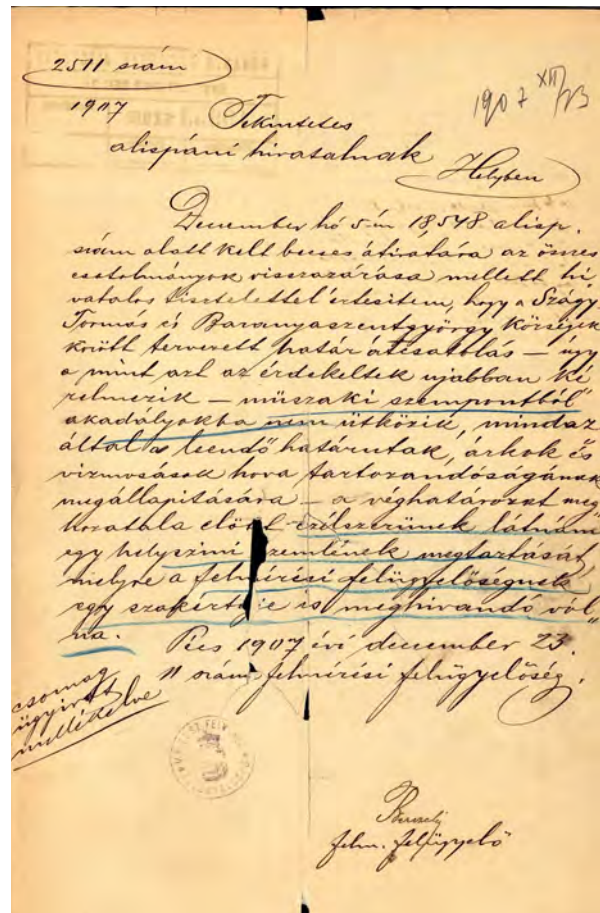 2511 szám
1907
1907 XII/23
Tekintetes
alispáni hivatalnak
Helyben
December hó 5-in 18,548 alisp.
szám alatt kelt becses átiratára az összes
csatolmányok visszazárása mellett hi
vatalos tisztelettel értesitem, hogy a Szágy-
Tormás és Baranyaszentgyörgy községek
között tervezett határ átcsatolás – úgy
a mint azt az érdekeltek ujabban ké
relmezik – müszaki szempontból
akadályokba nem ütközik, mindaz
által a leendő határutak, árkok és
vizmosások hova tartozandóságának
megállapitására – a véghatározat meg
hozatala előtt czélszerünek látnám
egy helyszini szemlének megtartását,
melyre a felmérési felügyelőségnek
egy szakértője is meghivandó vol„
na.
Pécs 1907 évi december 23.
11 szám felmérési felügyelőség.
csomag
ügyirat
mellékelve
felm. felügyelő